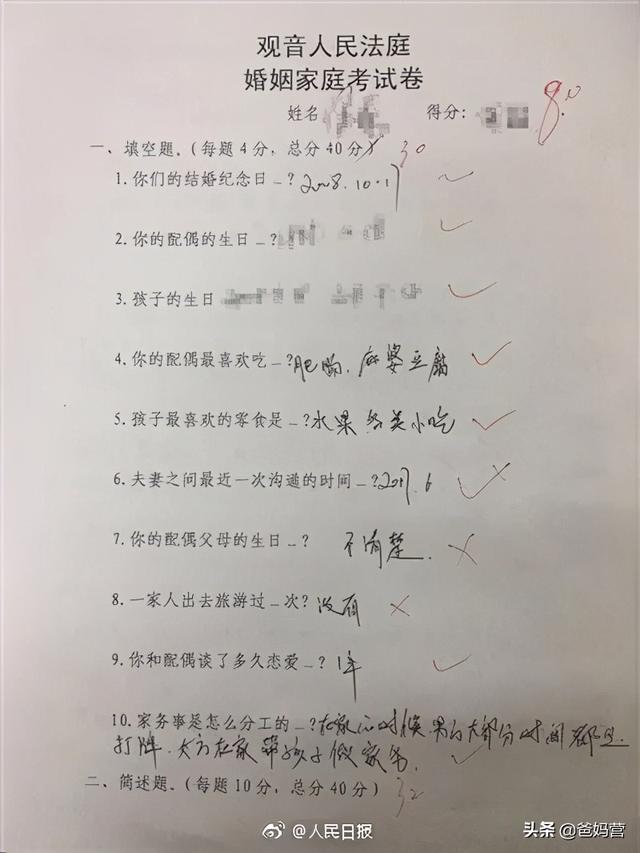 观音人民法庭
婚姻家庭考试卷
姓名 得分: 80
一、填空题。(每题4分,总分40分) 30
1.你们的结婚纪念日_?2008.10.17
2.你的配偶的生日_?
3.孩子的生日
4.你的配偶最喜欢吃_?肥肠、麻婆豆腐
5.孩子最喜欢的零食是_?水果 各类小吃
6.夫妻之间最近一次沟通的时间_?2017.6
7.你的配偶父母的生日_? 不清楚.
8.一家人出去旅游过_次?没有
9.你和配偶谈了多久恋爱_?1年
10.家务事是怎么分工的_?在家的时候 男的大部分时间都是
打牌、女方在家带孩子做家务.
二、简述题。(每题10分,总分40分) 32
@人民日报
头条 @爸妈营